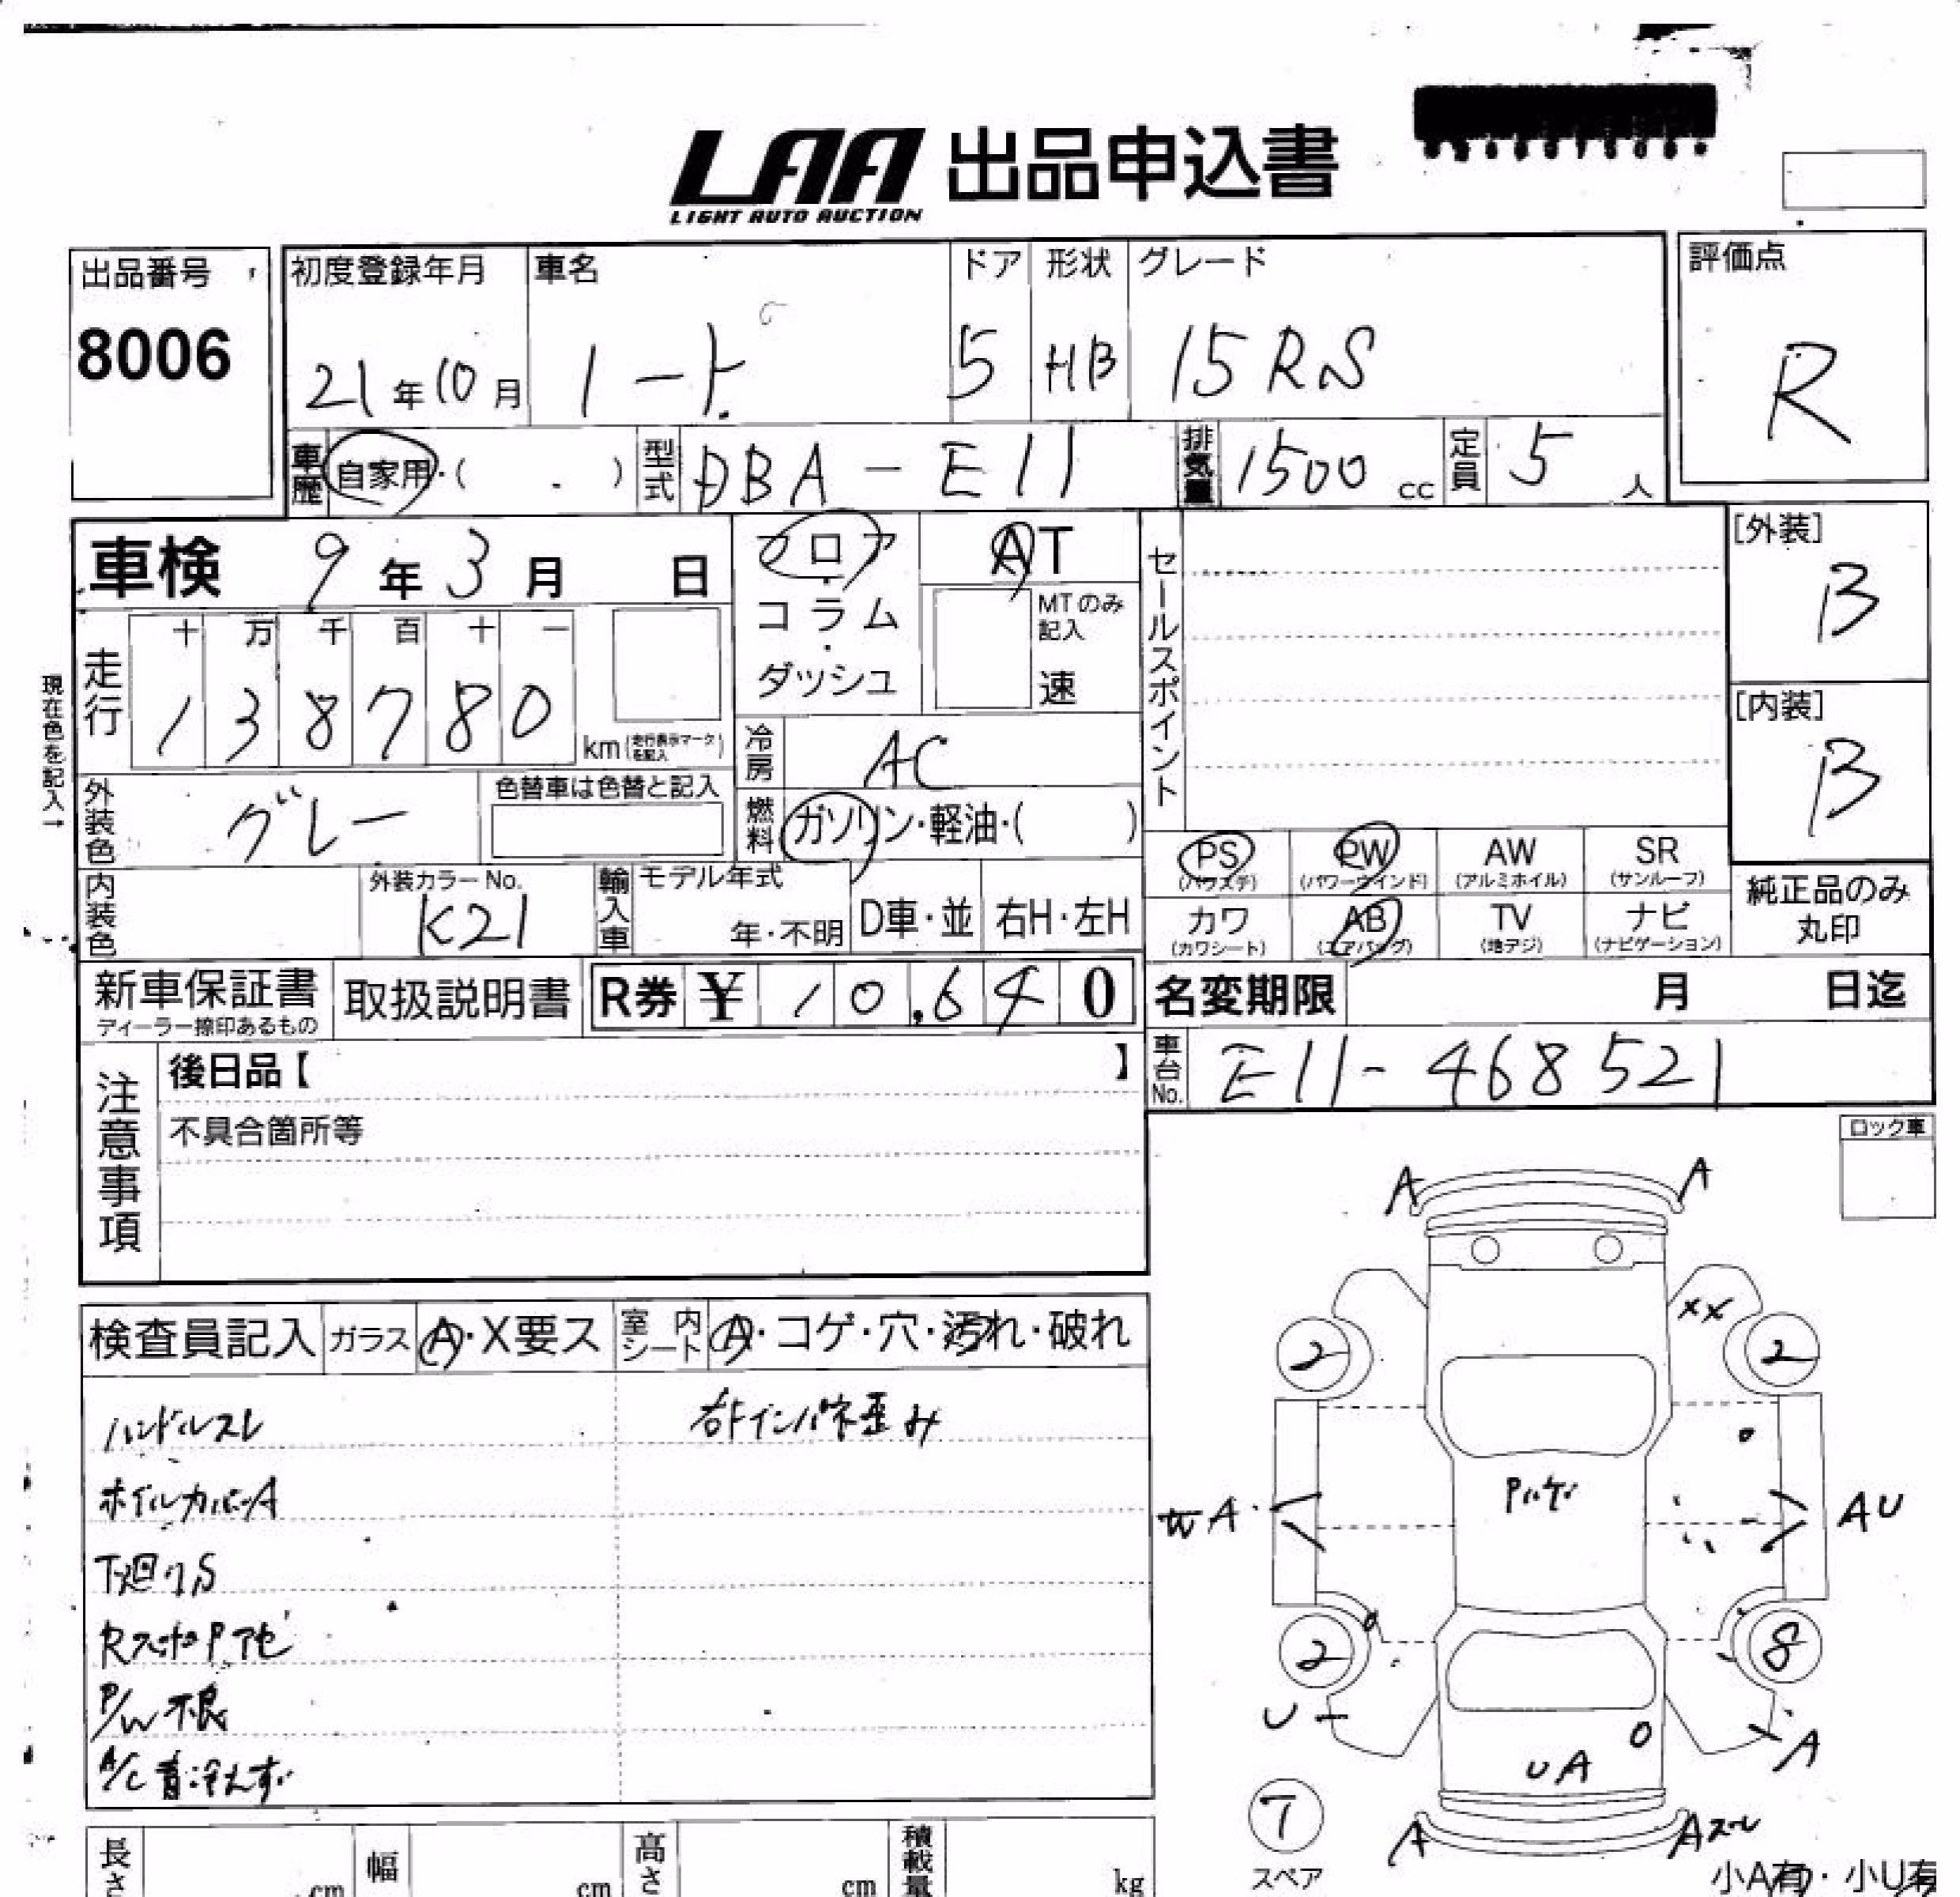 LAA 出品申込書
LIGHT AUTO AUCTION
出品番号
8006
初度登録年月
21年10月
車名
ノート
ドア
5
形状
HB
グレード
15RS
評価点
R
車歴
自家用・( )
型式
DBA-E11
排気量
1500cc
定員
5人
車検 9年3月 日
フロア・コラム・ダッシュ
AT
MTのみ記入
速
セールスポイント
[外装]
B
[内装]
B
現在色を記入→
走行
十 万 千 百 十 一
1 3 8 7 8 0 km(走行表示マークを記入)
冷房
AC
燃料
ガソリン・軽油・( )
外装色
グレー
色替車は色替と記入
内装色
外装カラーNo.
K21
輸入車
モデル年式
年・不明
D車・並
右H・左H
PS
(パワステ)
PW
(パワーウインド)
AW
(アルミホイル)
SR
(サンルーフ)
カワ
(カワシート)
AB
(エアバッグ)
TV
(地デジ)
ナビ
(ナビゲーション)
純正品のみ丸印
新車保証書
ディーラー捺印あるもの
取扱説明書
R券 ¥ 10,640
名変期限 月 日迄
車台No.
E11-468521
注意事項
後日品【 】
不具合箇所等
ロック車
検査員記入
ガラス
A・X要ス
室内シート
A・コゲ・穴・汚れ・破れ
ハンドルスレ
右Fインパネ歪み
ホイルカバーA
下廻りS
P/W不良
A/C 音・冷えず
A A
XX
2 2
A AU
2 8
U A
UA
7
スペア
A Aスレ
小A有・小U有
長さ cm
幅 cm
高さ cm
積載量 kg